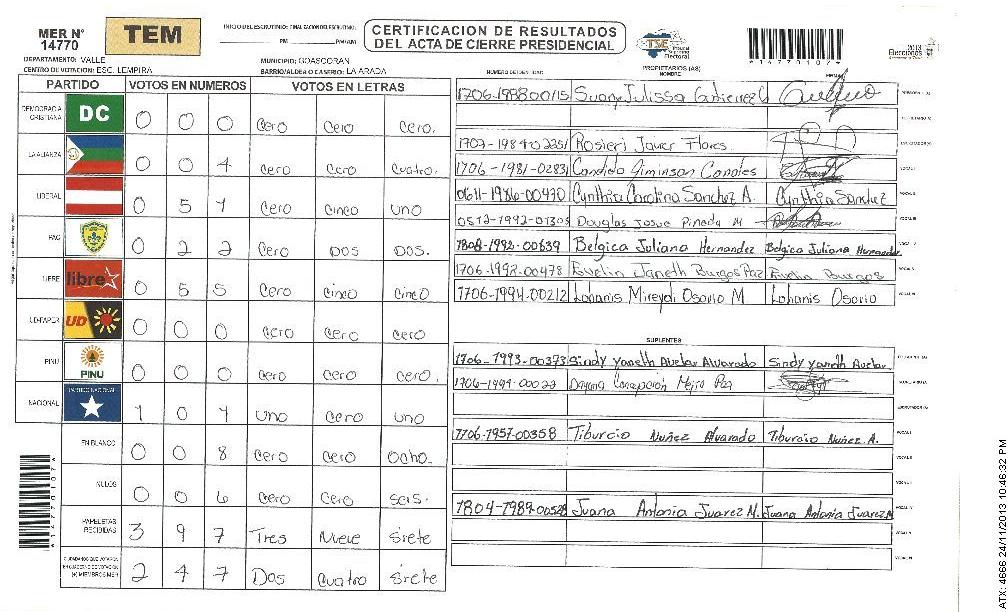 MER N° 14770
TEM
INICIO DEL ESCRUTINIO: FINALIZACION DEL ESCRUTINIO:
PM PM/AM
CERTIFICACION DE RESULTADOS
DEL ACTA DE CIERRE PRESIDENCIAL
TSE Tribunal Supremo Electoral
1 4 7 7 0 1 0 7 A
2013
Elecciones
DEPARTAMENTO: VALLE
MUNICIPIO: GOASCORAN
CENTRO DE VOTACION: ESC. LEMPIRA
BARRIO/ALDEA O CASERIO: LA ARADA
PROPIETARIOS (AS)
NOMBRE
FIRMA
PARTIDO VOTOS EN NUMEROS VOTOS EN LETRAS
DEMOCRACIA CRISTIANA DC 0 0 0 Cero Cero Cero.
LA ALIANZA 0 0 4 Cero Cero Cuatro.
LIBERAL 0 5 1 Cero Cinco Uno
PAC 0 2 2 Cero DOS DOS.
LIBRE libre 0 5 5 Cero Cinco Cinco
UD-FAPER UD 0 0 0 Cero Cero Cero
PINU PINU 0 0 0 Cero Cero Cero.
NACIONAL PARTIDO NACIONAL 1 0 1 Uno Cero Uno
EN BLANCO 0 0 8 Cero Cero Ocho.
NULOS 0 0 6 Cero Cero seis.
PAPELETAS RECIBIDAS 3 9 7 Tres Nueve Siete
CIUDADANOS QUE VOTARON EN CUADERNO DE VOTACION (+) MIEMBROS MER 2 4 7 Dos Cuatro Siete
1706-1988-00115 Suany Julissa Gutierrez
1707-1984-02251 Rosieri Javier Flores
1706-1981-02831 Candido Jiminson Canales
0611-1986-00970 Cynthia Carolina Sanchez A. Cynthia Sanchez
0512-1992-01305 Douglas Josue Pineda M
1808-1992-00639 Belgica Juliana Hernandez Belgica Juliana Hernandez
1706-1992-00478 Evelin Janeth Burgos Paz Evelin Burgos
1706-1994-00212 Lohanis Mireydi Osorio M Lohanis Osorio
SUPLENTES
1706-1993-00373 Sindy Yaneth Avelar Alvarado Sindy Yaneth Avelar
1706-1994-00022 Dayana Concepción Mejia Paz
1706-1957-00358 Tiburcio Nuñez Alvarado Tiburcio Nuñez A.
1804-1989-00528 Juana Antonia Juarez M. Juana Antonia Juarez M
ATX: 4666 24/11/2013 10:46:32 PM